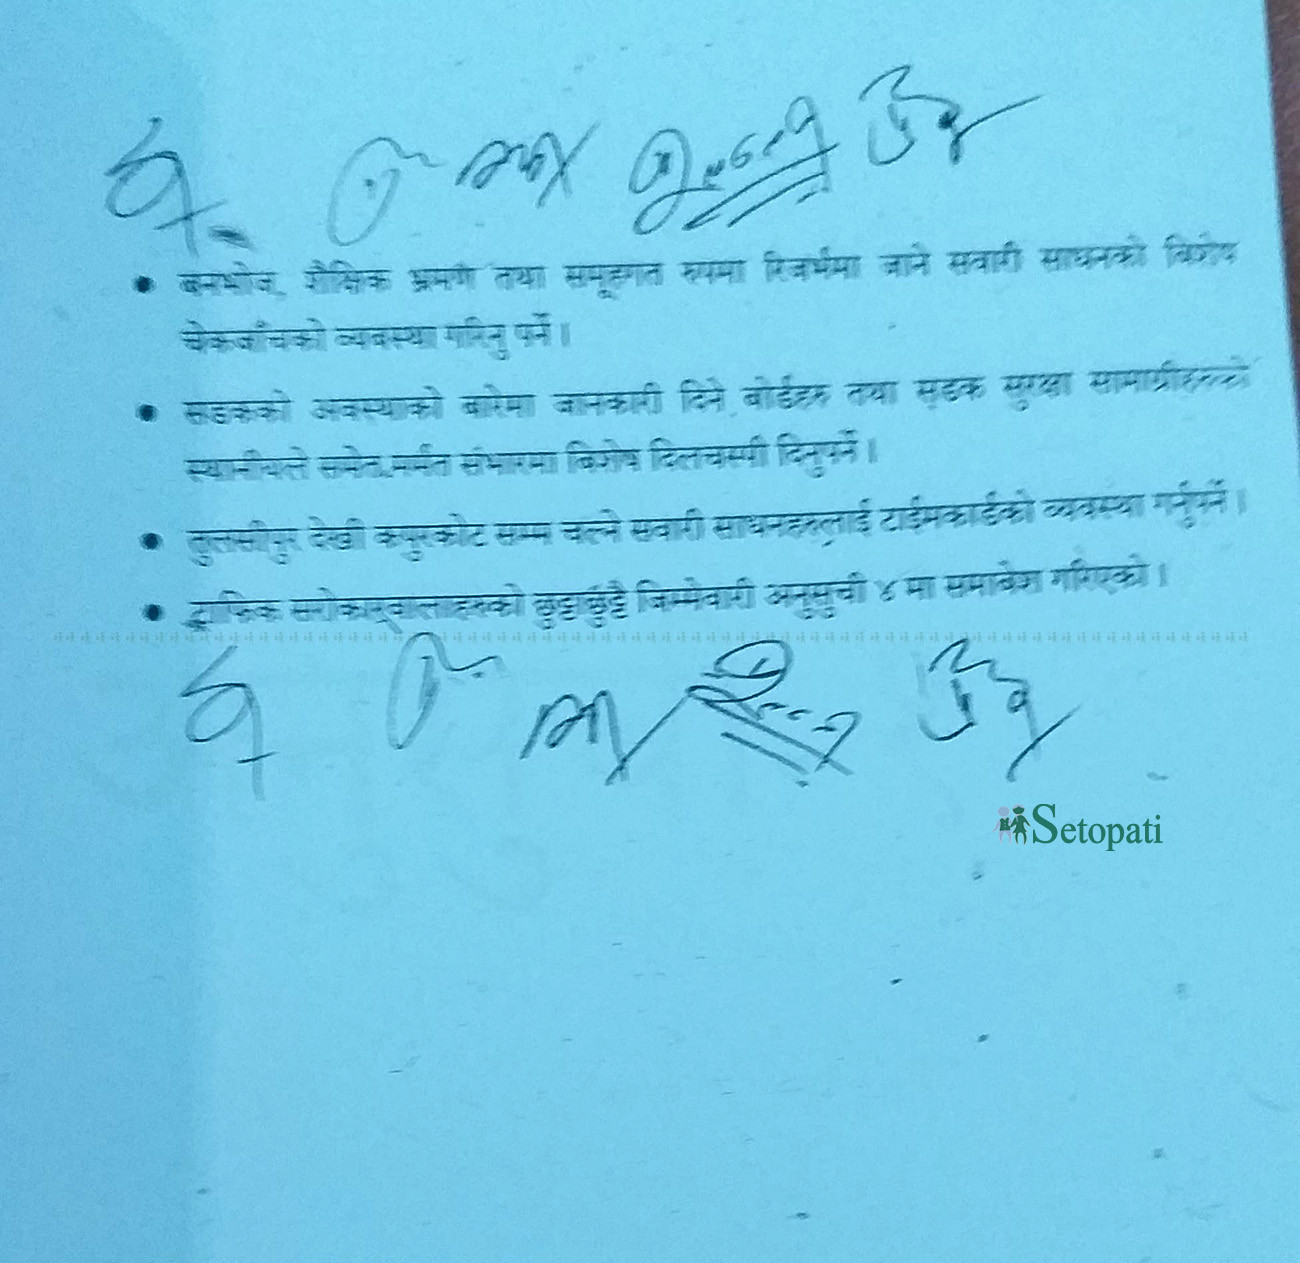 • बनभोज, शैक्षिक भ्रमण तथा समूहगत रुपमा रिजर्भमा जाने सवारी साधनको विशेष
चेकजाँचको व्यवस्था गरिनु पर्ने ।
• सडकको अवस्थाको बारेमा जानकारी दिने बोर्डहरु तथा सडक सुरक्षा सामाग्रीहरुको
स्थानीयले समेत मर्मत संभारमा विशेष दिलचस्पी दिनुपर्ने ।
• तुलसीपुर देखी कपुरकोट सम्म चल्ने सवारी साधनहरुलाई टाईमकार्डको व्यवस्था गर्नुपर्ने ।
• ट्राफिक सरोकारवालाहरुको छुट्टाछुट्टै जिम्मेवारी अनुसुची ४ मा समावेश गरिएको ।
Setopati